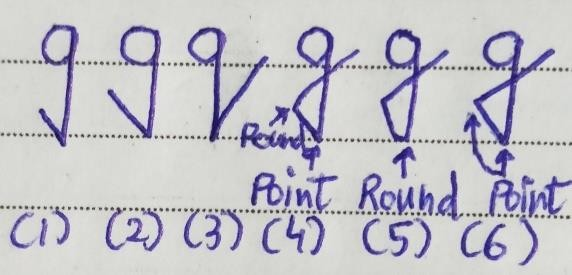 g g q g g g
Round
Point Round Point
(1) (2) (3) (4) (5) (6)